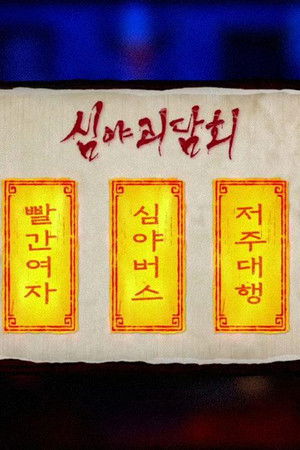 심야괴담회
빨간여자
심야버스
저주대행